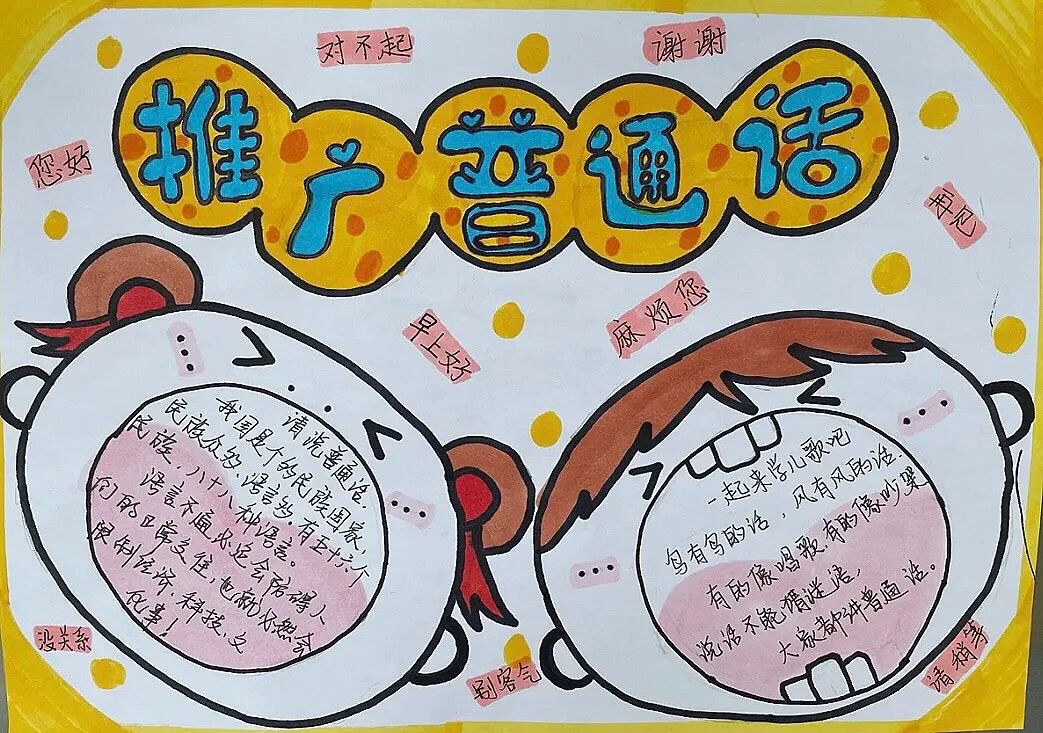 对不起
谢谢
推广普通话
您好
再见
早上好
麻烦您
请说普通话.
我国是个的民族国家,
民族众多,语言多.有五十六个
民族、八十八种语言。
语言不通必定会防碍人
们的日常交往,也就必然会
限制经济.科技.文
化事!
一起来学儿歌吧
鸟有鸟的话,风有风的话.
有的像唱歌.有的像吵
说话不能猜谜语,
大家都讲普通话。
没关系
别客气
请稍等